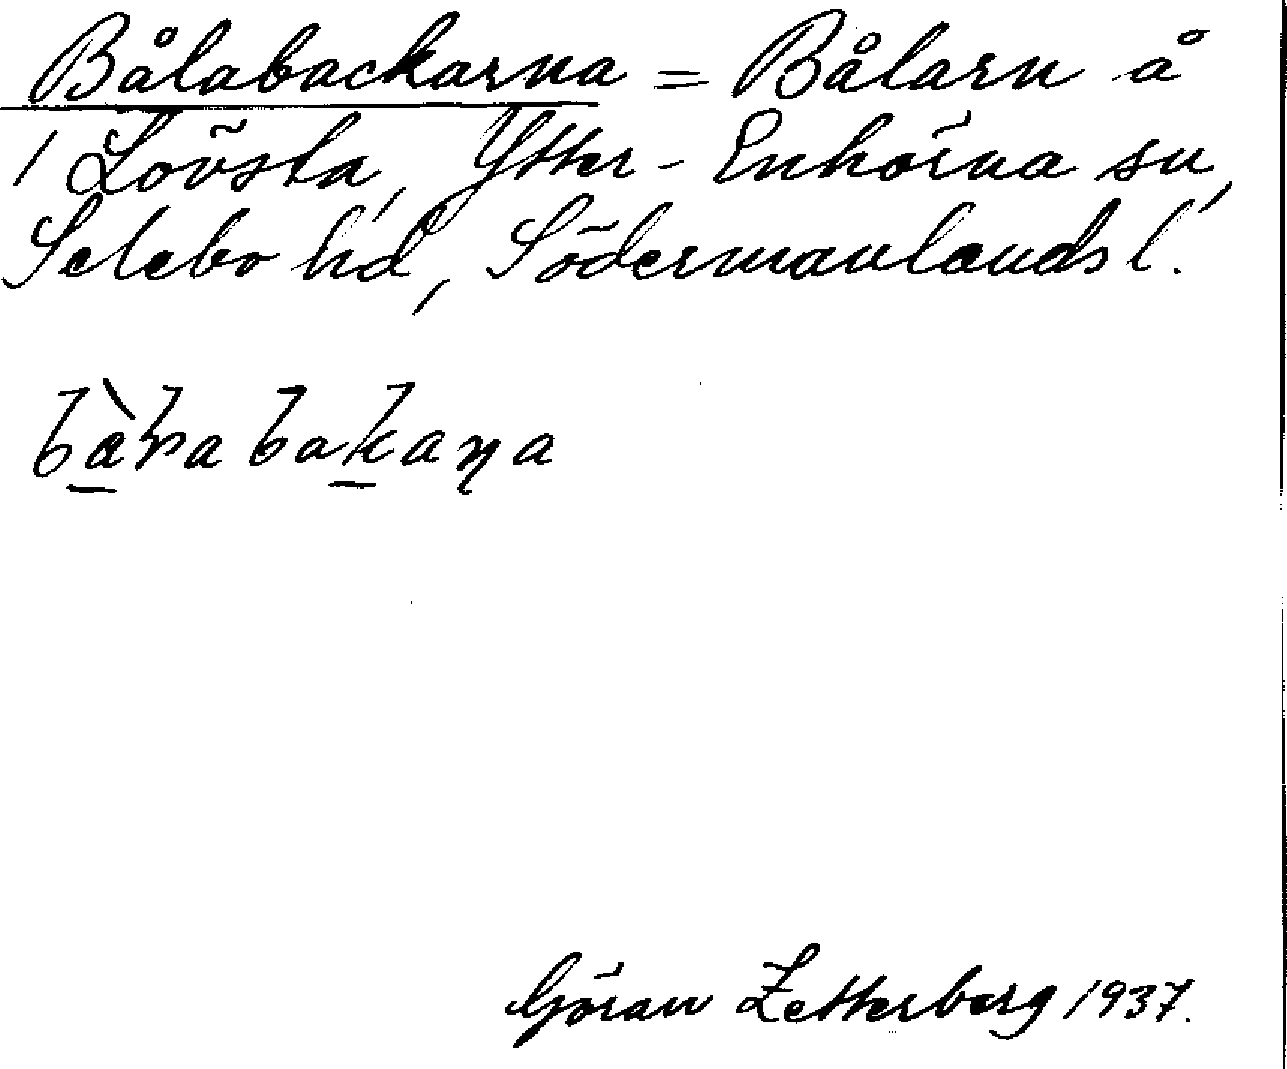 Bålabackarna = Bålarn å
1 Lövsta, Ytter-Enhörna sn,
Selebo hd, Södermanlands l.
Göran Zetterberg 1937.